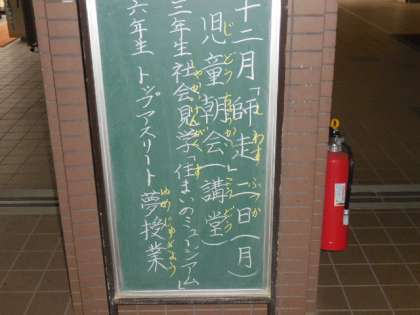 十二月「師走」二日(月)
しわす ふつか
児童朝会(講堂)
じどうちょうかい こうどう
三年生 社会見学「住まいのミュージアム」
しゃかいけんがく す
六年生 トップアスリート夢授業
ゆめじゅぎょう